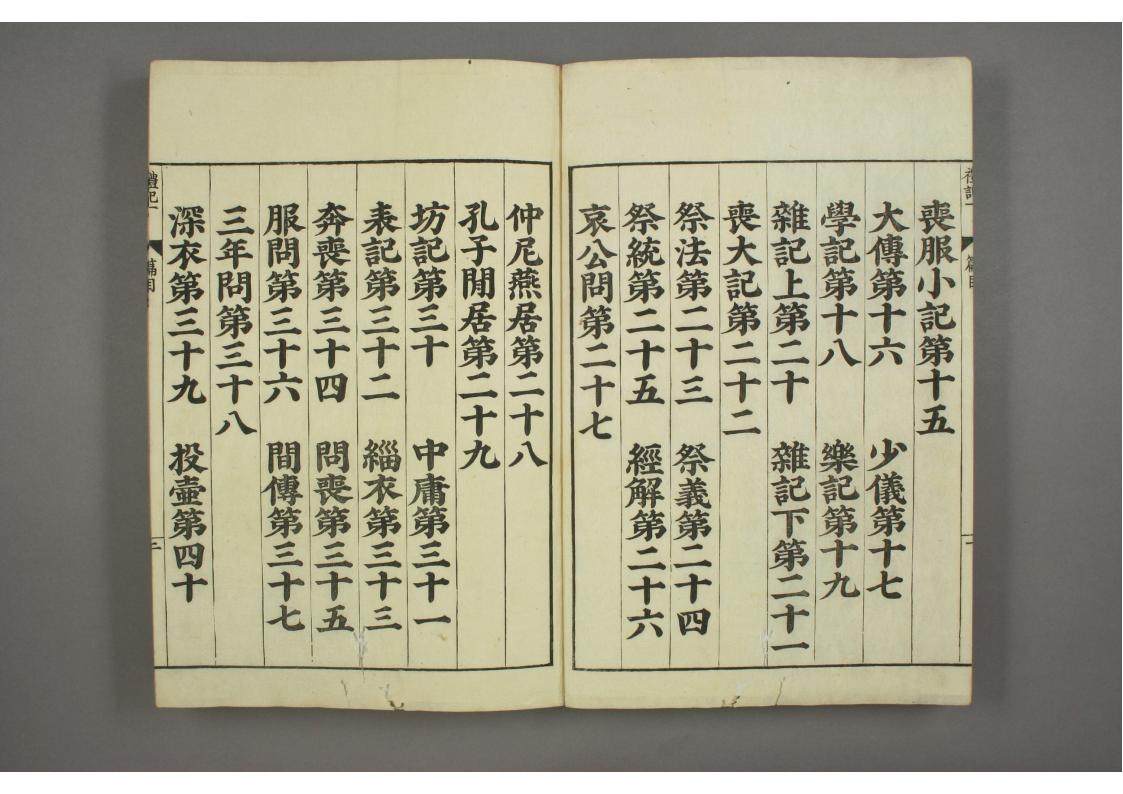 喪服小記第十五
大傳第十六　少儀第十七
學記第十八　樂記第十九
雜記上第二十　雜記下第二十一
喪大記第二十二
祭法第二十三　祭義第二十四
祭統第二十五　經解第二十六
哀公問第二十七
仲尼燕居第二十八
孔子閒居第二十九
坊記第三十　中庸第三十一
表記第三十二　緇衣第三十三
奔喪第三十四　問喪第三十五
服問第三十六　間傳第三十七
三年問第三十八
深衣第三十九　投壺第四十
禮記一　篇目　二